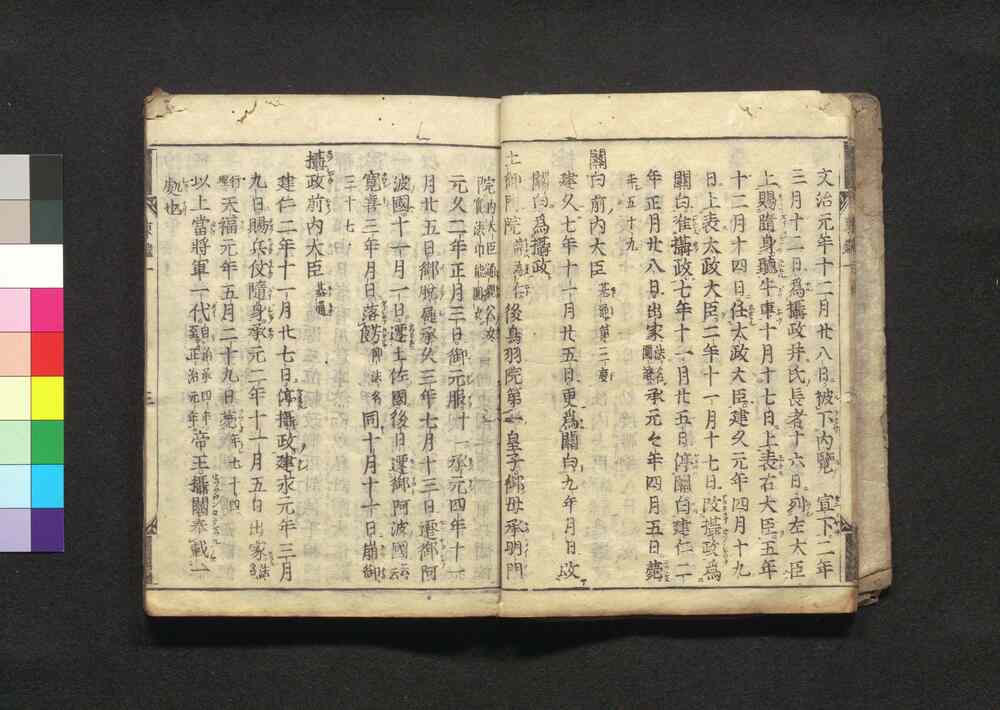 文治元年十二月廿八日被下内覽宣下二年
三月十二日為攝政并氏長者十六日列左大臣
上賜隨身聽牛車十月十七日上表右大臣五年
十二月十四日任太政大臣建久元年四月十九
日上表太政大臣二年十一月十七日改攝政為
關白准攝政七年十一月廿五日停關白建仁二
年正月廿八日出家法名圓證承元々年四月五日薨
年五十九
關白前内大臣基通第二度
建久七年十一月廿五日更為關白九年月日改
關白為攝政
土御門院諱為仁後鳥羽院第一皇子御母承明門
院内大臣通親公女實法印能圓女
元久二年正月三日御元服十一承元四年十一
月廿五日御脱屣承久三年七月十三日遷御阿
波國十一月一日遷土佐國後日遷御阿波國云云
寛喜三年月日落餝御法名同十月十一日崩御
三十七
攝政前内大臣基通
建仁二年十一月廿七日停攝政建永元年三月
九日賜兵仗隨身承元二年十一月五日出家法名
行理天福元年五月二十九日薨年七十四
以上當將軍一代自治承四年至正治元年帝王攝關奉載一
處也